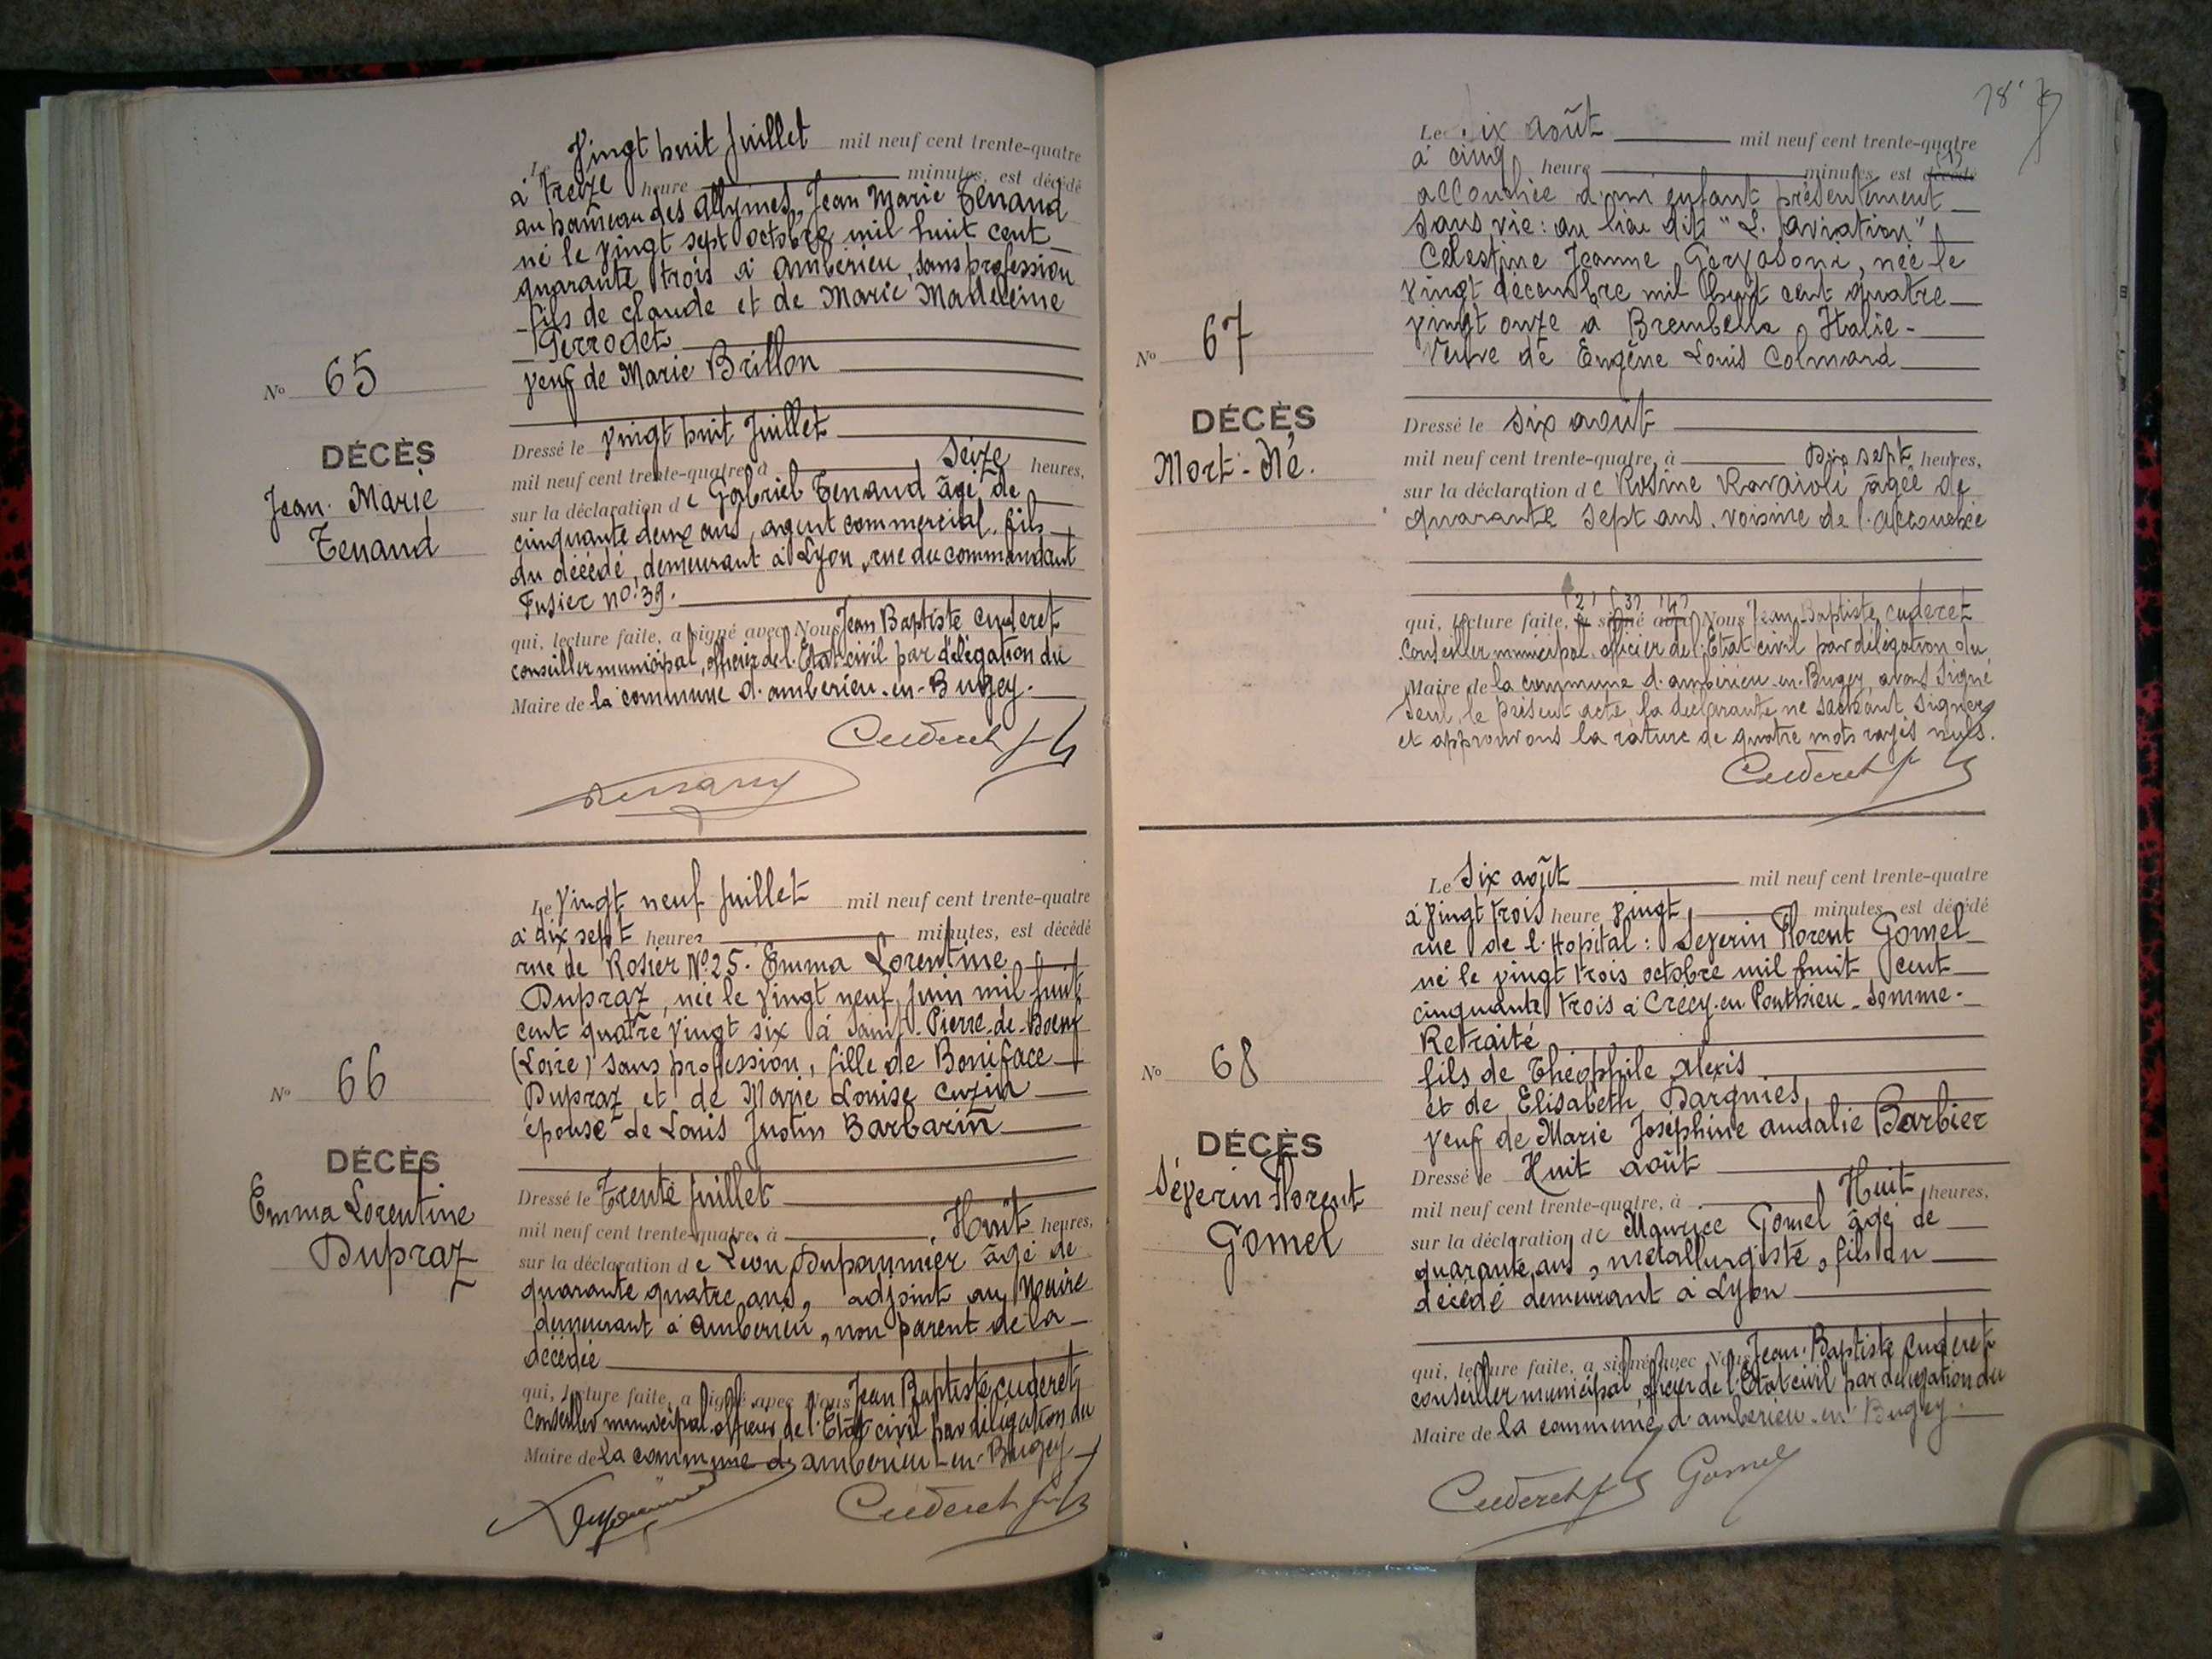 Le Vingt huit Juillet mil neuf cent trente-quatre
à Treize heure minutes, est décédé
au hameau des Allymes, Jean Marie Tenand
né le vingt sept octobre mil huit cent
quarante trois à Ambérieu, sans profession
fils de Claude et de Marie Madeleine
Perrodet
veuf de Marie Brillon
N° 65
DÉCÈS
Jean Marie
Tenand
Dressé le vingt huit Juillet
mil neuf cent trente-quatre, à Seize heures,
sur la déclaration de Gabriel Tenand âgé de
cinquante deux ans, agent commercial, fils
du décédé, demeurant à Lyon, rue du commandant
Fusier no: 39.
qui, lecture faite, a signé avec Nous Jean Baptiste Cuderet
conseiller municipal, officier de l'Etat civil par délégation du
Maire de la commune d'ambérieu-en-Bugey.
Cuderet
Le Vingt neuf Juillet mil neuf cent trente-quatre
à dix sept heures minutes, est décédé
rue de Rosier N° 25. Emma Lorentine
Dupraz, née le vingt neuf juin mil huit
cent quatre vingt six à Saint-Pierre-de-Boeuf
(Loire) sans profession, fille de Boniface
Dupraz et de Marie Louise Cuzin
épouse de Louis Justin Barbarin
N° 66
DÉCÈS
Emma Lorentine
Dupraz
Dressé le Trente Juillet
mil neuf cent trente-quatre, à Huit heures,
sur la déclaration de Léon Dupaumier âgé de
quarante quatre ans, adjoint au Maire
demeurant à Ambérieu, non parent de la
décédée
qui, lecture faite, a signé avec Nous Jean Baptiste Cuderet
Conseiller municipal officier de l'Etat civil par délégation du
Maire de la commune d'ambérieu-en-Bugey
Cuderet
78
Le Six août mil neuf cent trente-quatre
à cinq heure minutes, est décédé (1)
accouchée d'un enfant présentement
sans vie: au lieu dit "L'aviation"
Célestine Jeanne Gervasoni, née le
vingt décembre mil huit cent quatre
vingt onze à Brembella, Italie-
Veuve de Eugène Louis Colmard
N° 67
DÉCÈS
Mort-Né.
Dressé le six août
mil neuf cent trente-quatre, à Dix sept heures,
sur la déclaration de Rosine Ravaioli âgée de
quarante sept ans, voisine de l'accouchée
(2) (3) (4)
qui, lecture faite, a signé avec Nous Jean-Baptiste Cuderet
Conseiller municipal officier de l'Etat civil par délégation du
Maire de la commune d'ambérieu-en-Bugey, avons signé
seul, le présent acte, la déclarante ne sachant signer
et approuvons la rature de quatre mots rayés nuls.
Cuderet
Le Six août mil neuf cent trente-quatre
à vingt trois heure vingt minutes, est décédé
rue de l'Hopital: Séverin Florent Gomel
né le vingt trois octobre mil huit cent
cinquante trois à Crecy-en Ponthieu-Somme-
Retraité
fils de Théophile Alexis
et de Elisabeth Dargnies
veuf de Marie Joséphine Andalie Barbier
N° 68
DÉCÈS
Séverin Florent
Gomel
Dressé le Huit août
mil neuf cent trente-quatre, à Huit heures,
sur la déclaration de Maurice Gomel âgé de
quarante ans, métallurgiste, fils du
décédé demeurant à Lyon
qui, lecture faite, a signé avec Nous Jean-Baptiste Cuderet
conseiller municipal officier de l'Etat civil par délégation du
Maire de la commune d'ambérieu-en-Bugey.
Cuderet Gomel